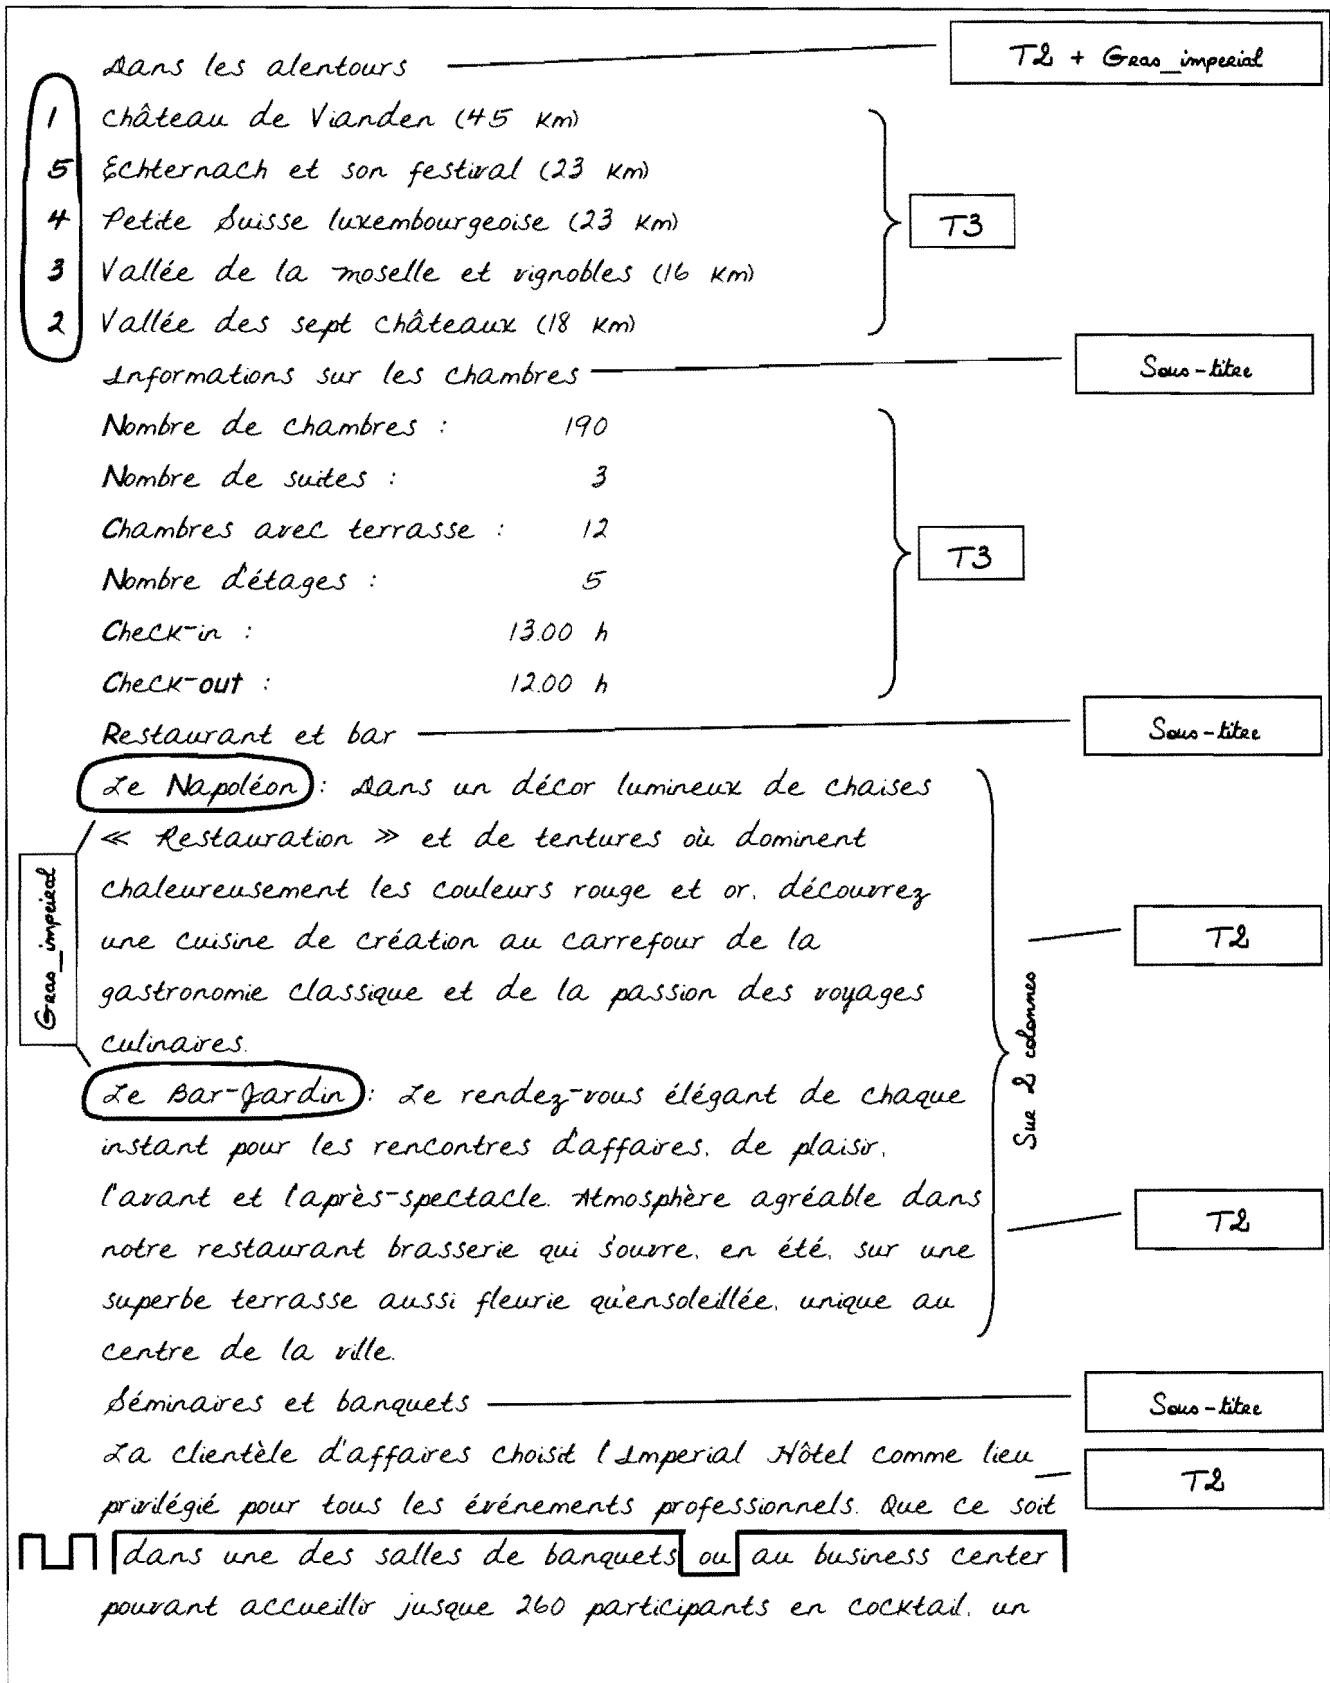 Dans les alentours T2 + Gras_imperial
1 Château de Vianden (45 km)
5 Echternach et son festival (23 km)
4 Petite Suisse luxembourgeoise (23 km) T3
3 Vallée de la moselle et vignobles (16 km)
2 Vallée des sept châteaux (18 km)
Informations sur les chambres Sous-titre
Nombre de chambres : 190
Nombre de suites : 3
Chambres avec terrasse : 12
T3
Nombre d'étages : 5
Check-in : 13.00 h
Check-out : 12.00 h
Restaurant et bar Sous-titre
Le Napoléon : Dans un décor lumineux de chaises
« Restauration » et de tentures où dominent
chaleureusement les couleurs rouge et or, découvrez
une cuisine de création au carrefour de la T2
gastronomie classique et de la passion des voyages
culinaires.
Gras_impérial
Sur 2 colonnes
Le Bar-Jardin : Le rendez-vous élégant de chaque
instant pour les rencontres d'affaires, de plaisir,
l'avant et l'après-spectacle. Atmosphère agréable dans
T2
notre restaurant brasserie qui s'ouvre, en été, sur une
superbe terrasse aussi fleurie qu'ensoleillée, unique au
centre de la ville.
Séminaires et banquets Sous-titre
La clientèle d'affaires choisit l'Imperial Hôtel comme lieu
T2
privilégié pour tous les événements professionnels. Que ce soit
dans une des salles de banquets ou au business center
pouvant accueillir jusque 260 participants en cocktail, un